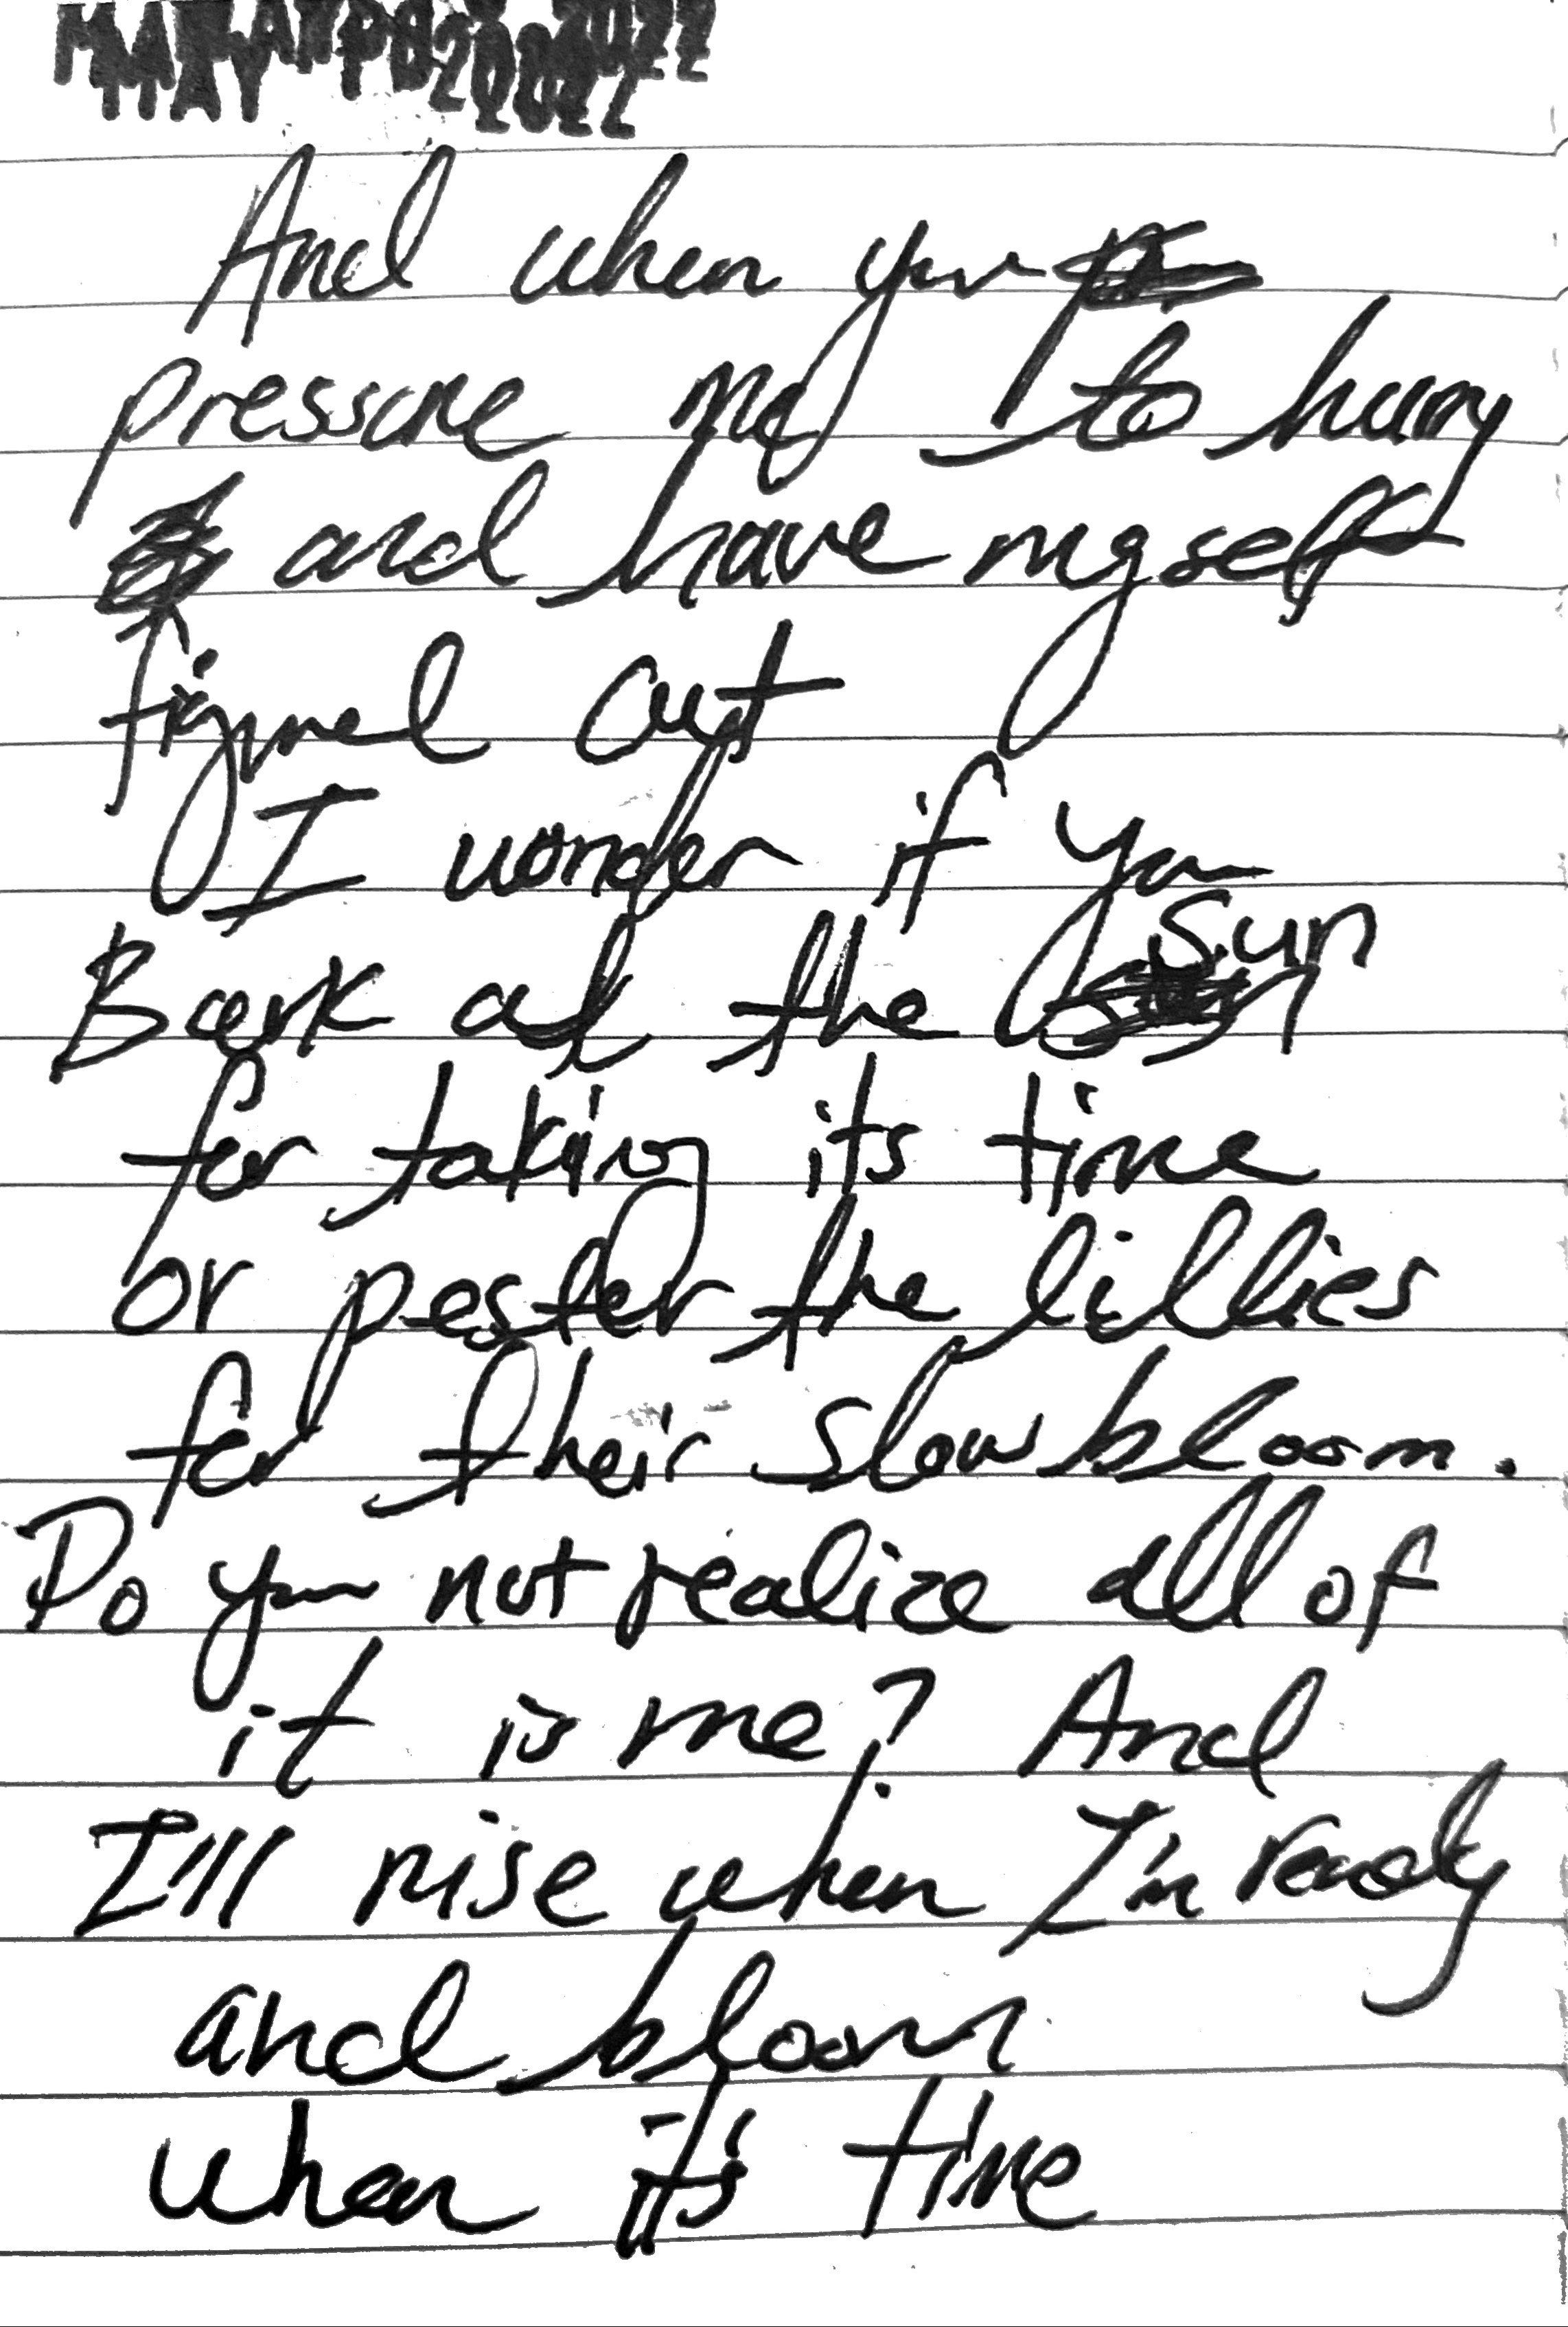 And when you
pressure me to hurry
and have myself
figured out
I wonder if you
Bark at the sun
for taking its time
or pester the lillies
for their slow bloom.
Do you not realize all of
it is me? And
I'll rise when I'm ready
and bloom
when it's time